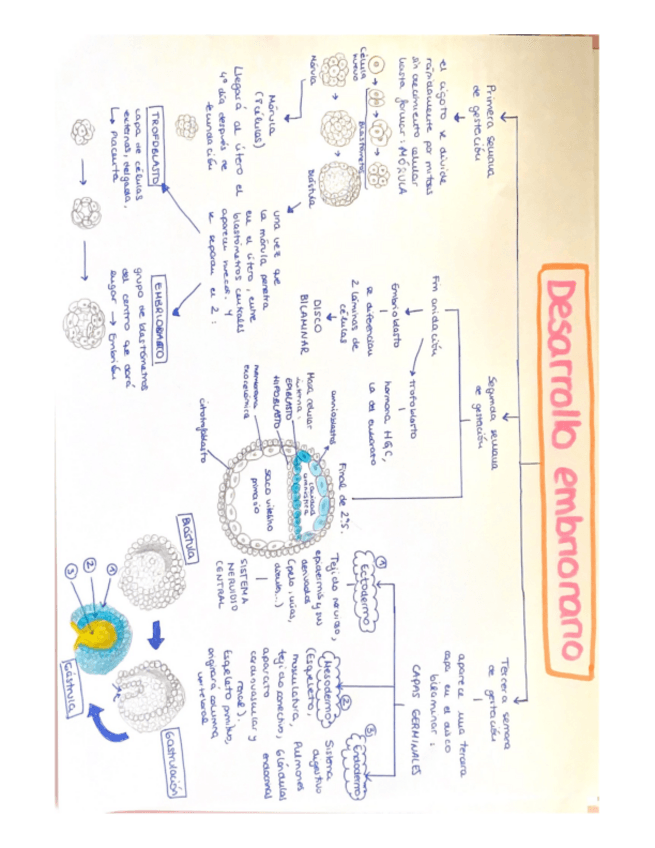 Desarrollo embrionario
Primera semana
de gestación
el cigoto se divide
rápidamente por mitosis
sin crecimiento celular
hasta formar: MÓRULA
Célula
huevo
Blastómeros
Mórula
Blástula
Mórula
(8 células)
Llegará al útero el
4º día después de
fecundación
una vez que
la mórula penetra
en el útero, entre
blastómeros centrales
aparecen huecos y
se separan en 2:
TROFOBLASTO
capa de células
externas, delgada,
↳ Placenta
EMBRIOBLASTO
grupo de blastómeros
del centro que dará
lugar → Embrión
Segunda semana
de gestación
Fin anidación
Embrioblasto
se diferencian
2 láminas de
células
DISCO
BILAMINAR
trofoblasto
hormona HGC,
la del embarazo
Final de 2ªS.
amnioblastos
Masa celular
interna:
EPIBLASTO
HIPOBLASTO
membrana
exocelómica
citotrofoblasto
cavidad
amniótica
saco vitelino
primario
Tercera semana
de gestación
aparece una tercera
capa en el disco
bilaminar:
CAPAS GERMINALES
①
Ectodermo
Tejido nervioso,
epidermis y sus
derivados
(pelo, uñas,
dientes...)
SISTEMA
NERVIOSO
CENTRAL
②
Mesodermo
(Esqueleto,
musculatura,
tejido conectivo,
aparato
cardiovascular y
renal).
Esqueleto primitivo,
originará columna
vertebral
③
Endodermo
Sistema
digestivo
Pulmones
Glándulas
endocrinas
Blástula
Gastrulación
Gástrula
①
②
③